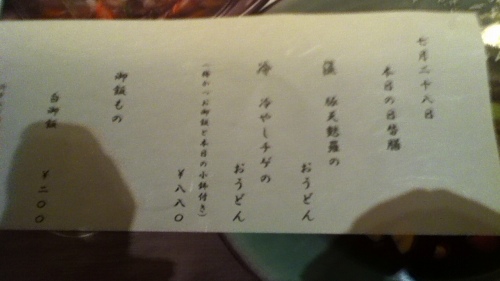 七月二十八日
本日の日替膳
温 豚天麩羅の
おうどん
冷 冷やしチゲの
おうどん
(梅かつお御飯と本日の小鉢付き)
￥八八〇
御飯もの
白御飯
￥二〇〇